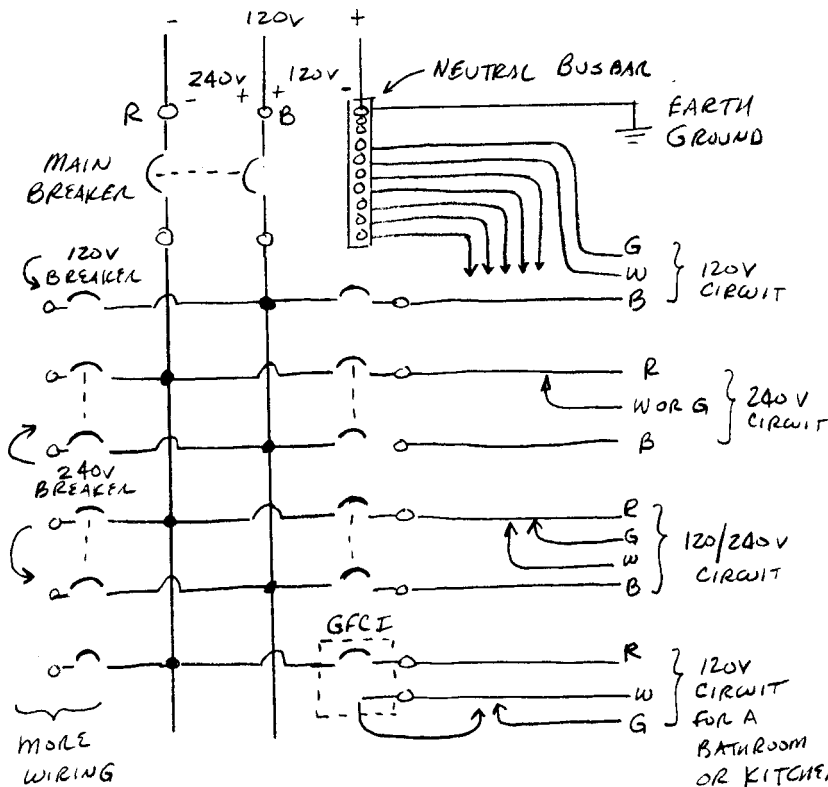 - 120V +
- 240V + + 120V -
NEUTRAL BUSBAR
R
B
EARTH
GROUND
MAIN
BREAKER
120V
BREAKER
G
W
B
120V
CIRCUIT
R
W OR G
B
240V
CIRCUIT
240V
BREAKER
R
G
W
B
120/240V
CIRCUIT
GFCI
R
W
G
120V
CIRCUIT
FOR A
BATHROOM
OR KITCHE
MORE
WIRING